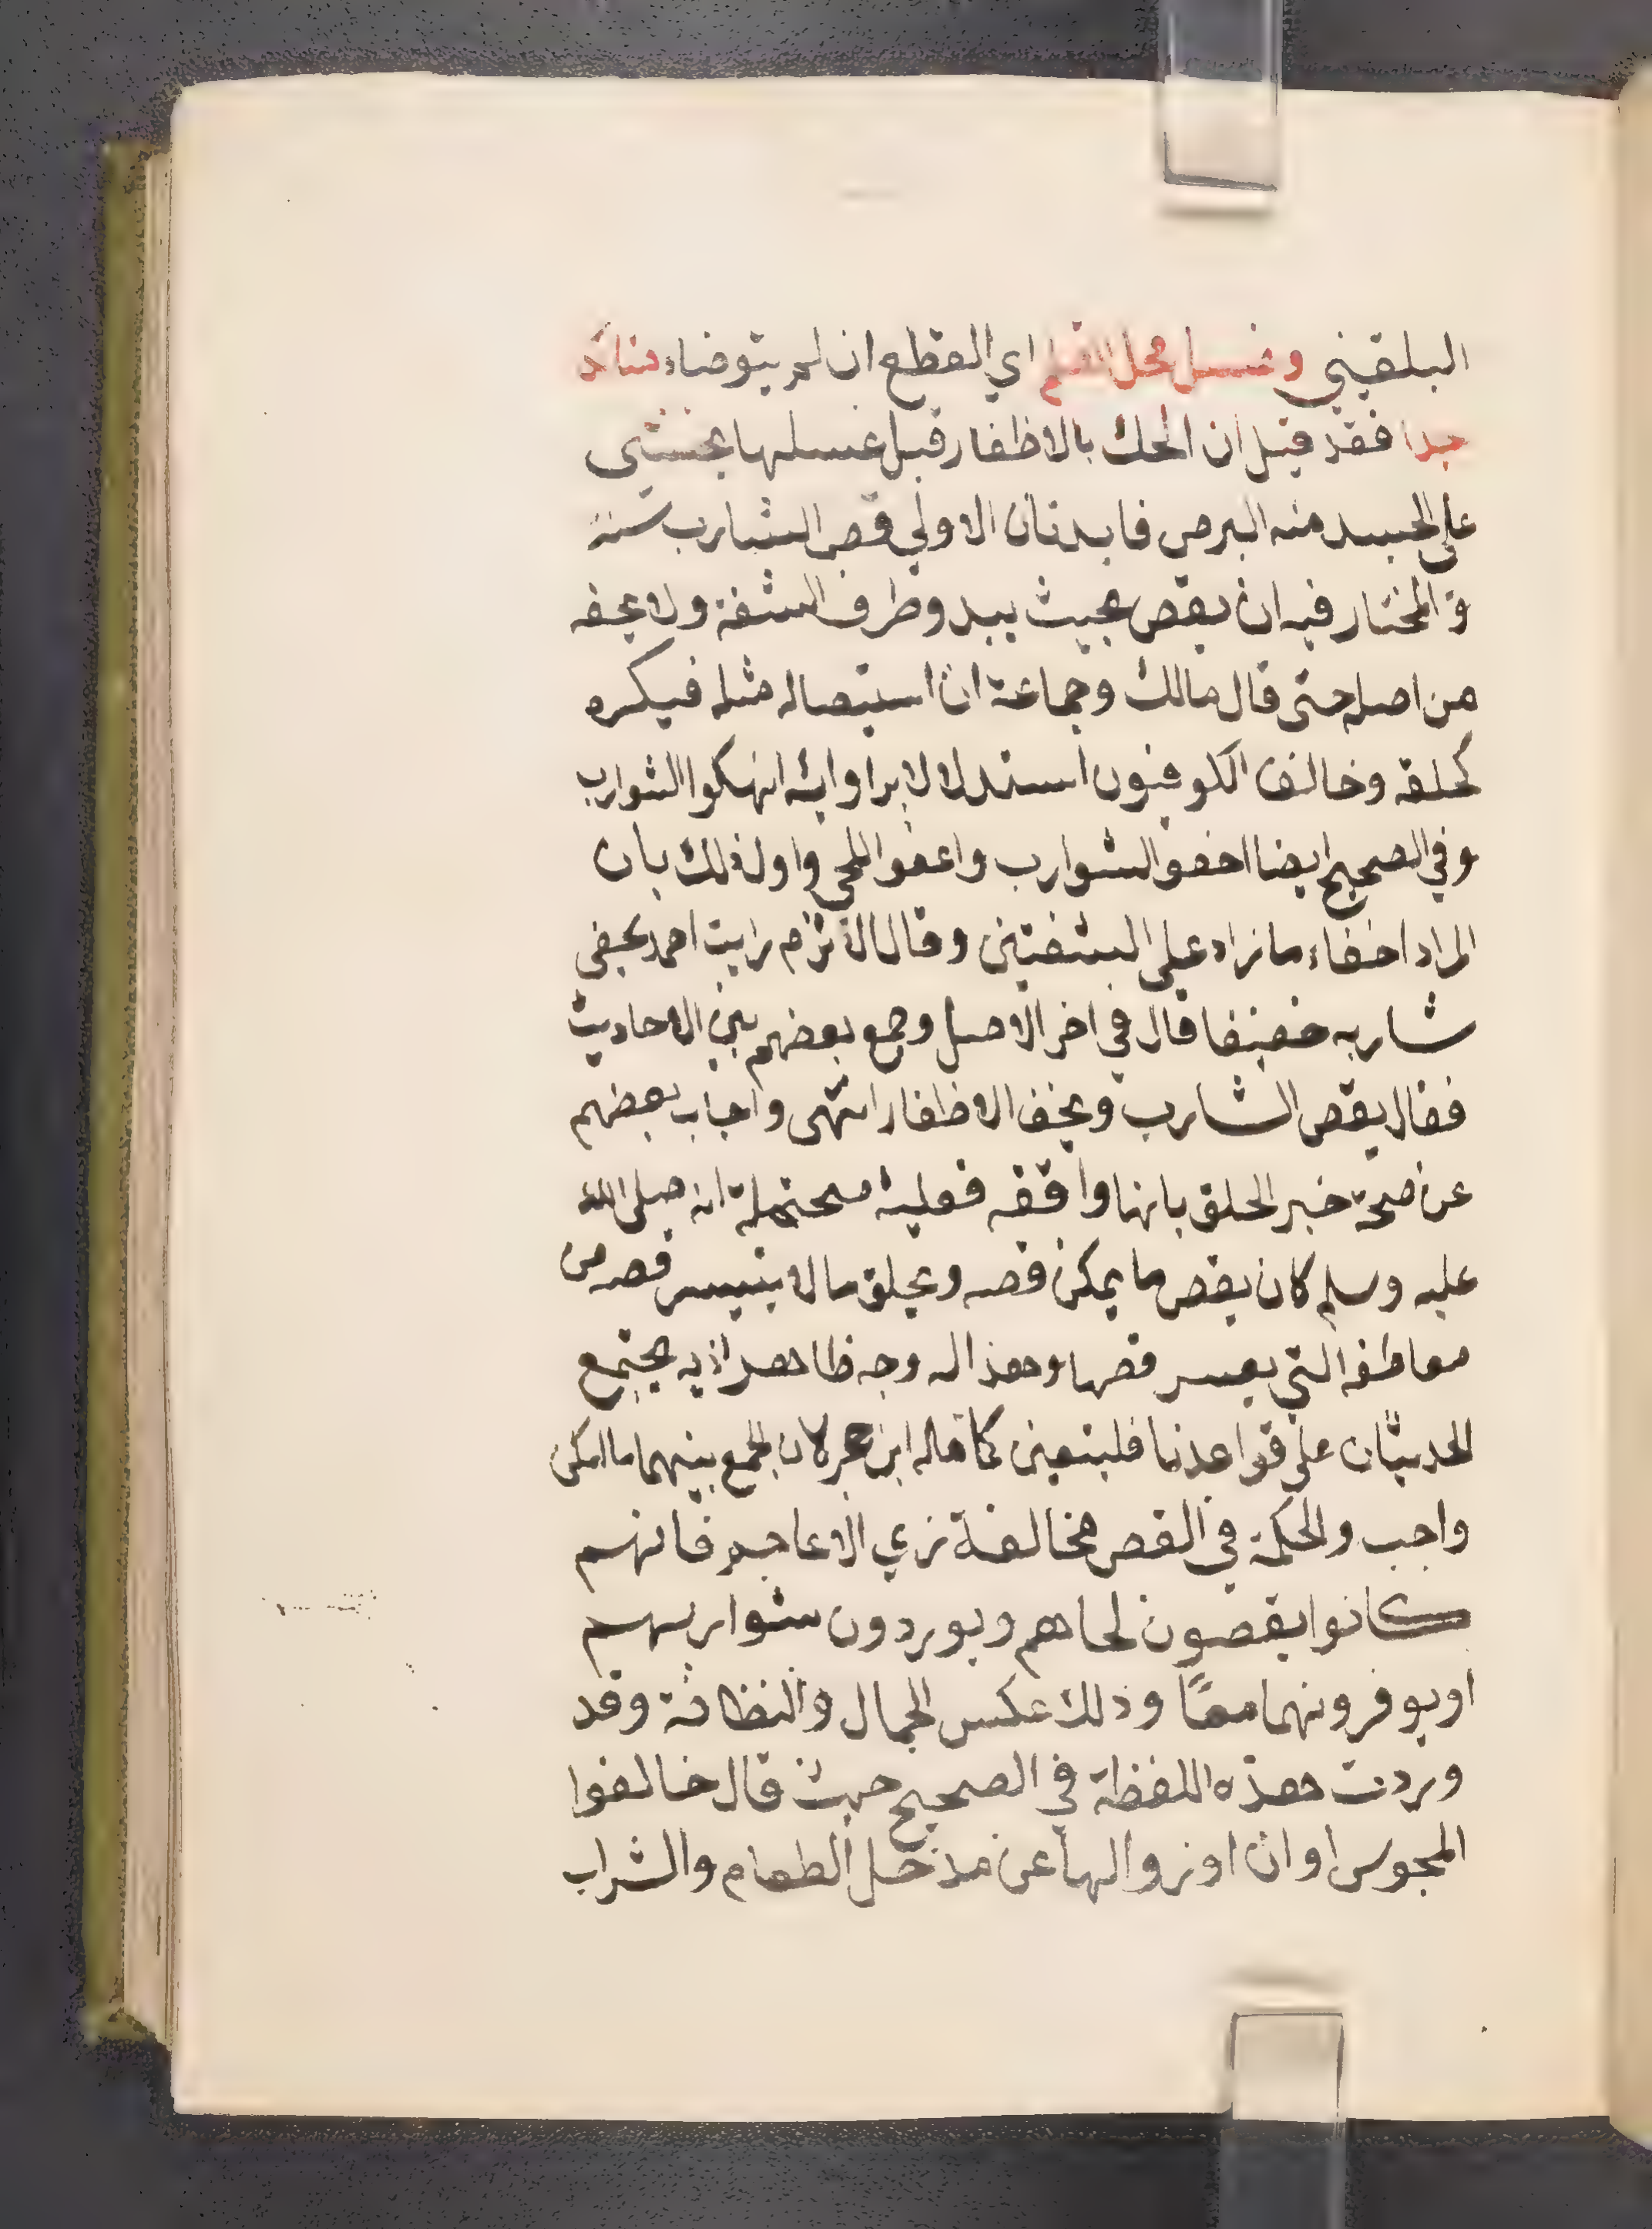 البلقيني وغسل محل القلم اي القطع ان لم يتوضاء متاكد
جدا فقد قيل ان الحك بالاظفار قبل غسلها يخشى
على الجسد منه البرص فايدتان الاولي قص الشارب سنة
والمختار فيه ان يقص بحيث يبدو طرف الشفة ولا يحفه
من اصله حتى قال مالك وجماعة ان استيصاله مثله فيكره
كحلقه وخالف الكوفيون استدلالا براواية انهكوا الشوارب
وفي الصحيح ايضا احفو الشوارب واعفوا اللحي واول ذلك بان
المراد احفاء ما زاد على الشفتين وقال الاثرم رايت احمد يحفي
شاربه خفيفا قال في اخر الاصل وجمع بعضهم بين الاحاديث
فقال يقص الشارب ويحف الاظفار انتهى واجاب بعضهم
عن صحة خبر الحلق بانها واقفه فعلية محتملة انه صلى الله
عليه وسلم كان يقص ما يمكن قصه ويحلق مالا يتيسر قصه من
معاطفه التي يعسر قصها وهذا له وجه ظاهر اذ به يجتمع
الحديثان على قواعدنا فليتعين كما قاله ابن حجر لان الجمع بينهما ما امكن
واجب والحكمة في القص مخالفة زي الاعاجم فانهم
كانوا يقصون لحاهم ويوردون شواربهم
او يوفرونهما معًا وذلك عكس الجمال والنظافة وقد
وردت هذه اللفظة في الصحيح حيث قال خالفوا
المجوس او ان زوالها عن مدخل الطعام والشراب